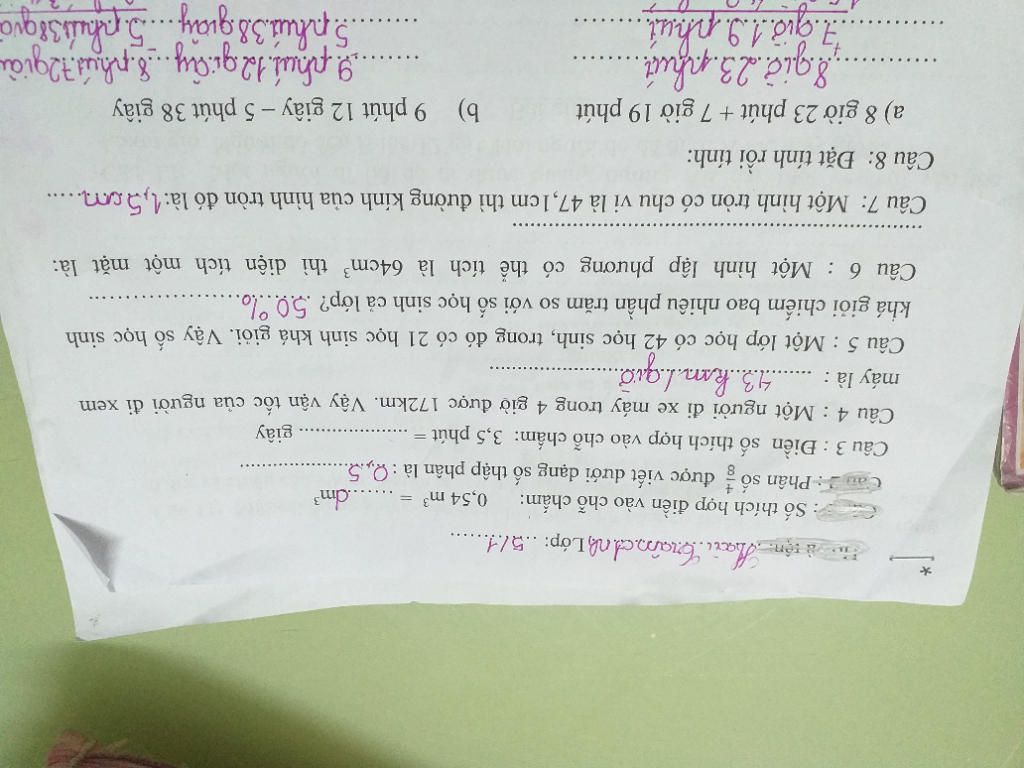 *
và tên: Trâm Anh Lớp: 5/1
: Số thích hợp điền vào chỗ chấm: 0,54 m³ = ........ dm³
Câu 2 : Phân số 4/8 được viết dưới dạng số thập phân là : 0,5
Câu 3 : Điền số thích hợp vào chỗ chấm: 3,5 phút = .................. giây
Câu 4 : Một người đi xe máy trong 4 giờ được 172km. Vậy vận tốc của người đi xem
máy là : 43 km / giờ
Câu 5 : Một lớp học có 42 học sinh, trong đó có 21 học sinh khá giỏi. Vậy số học sinh
khá giỏi chiếm bao nhiêu phần trăm so với số học sinh cả lớp? 50 %
Câu 6 : Một hình lập phương có thể tích là 64cm³ thì diện tích một mặt là:
Câu 7: Một hình tròn có chu vi là 47,1cm thì đường kính của hình tròn đó là: 1,5 cm
Câu 8: Đặt tính rồi tính:
a) 8 giờ 23 phút + 7 giờ 19 phút b) 9 phút 12 giây – 5 phút 38 giây
8 giờ 23 phút 9 phút 12 giây 8 phút 72 giây
+
7 giờ 19 phút 5 phút 38 giây 5 phút 38 giây